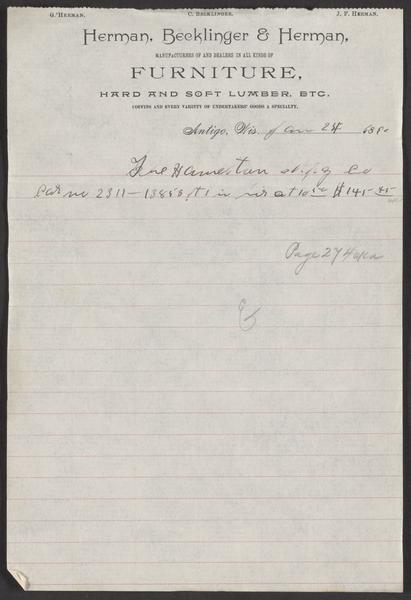 G. Herman. C. Becklinger. J. F. Herman.
Herman, Becklinger & Herman,
MANUFACTURERS OF AND DEALERS IN ALL KINDS OF
FURNITURE,
HARD AND SOFT LUMBER, ETC.
COFFINS AND EVERY VARIETY OF UNDERTAKERS' GOODS A SPECIALTY.
Antigo, Wis. 24 188
Hamilton Co
Car no 2311 — at $141.45
Page 274